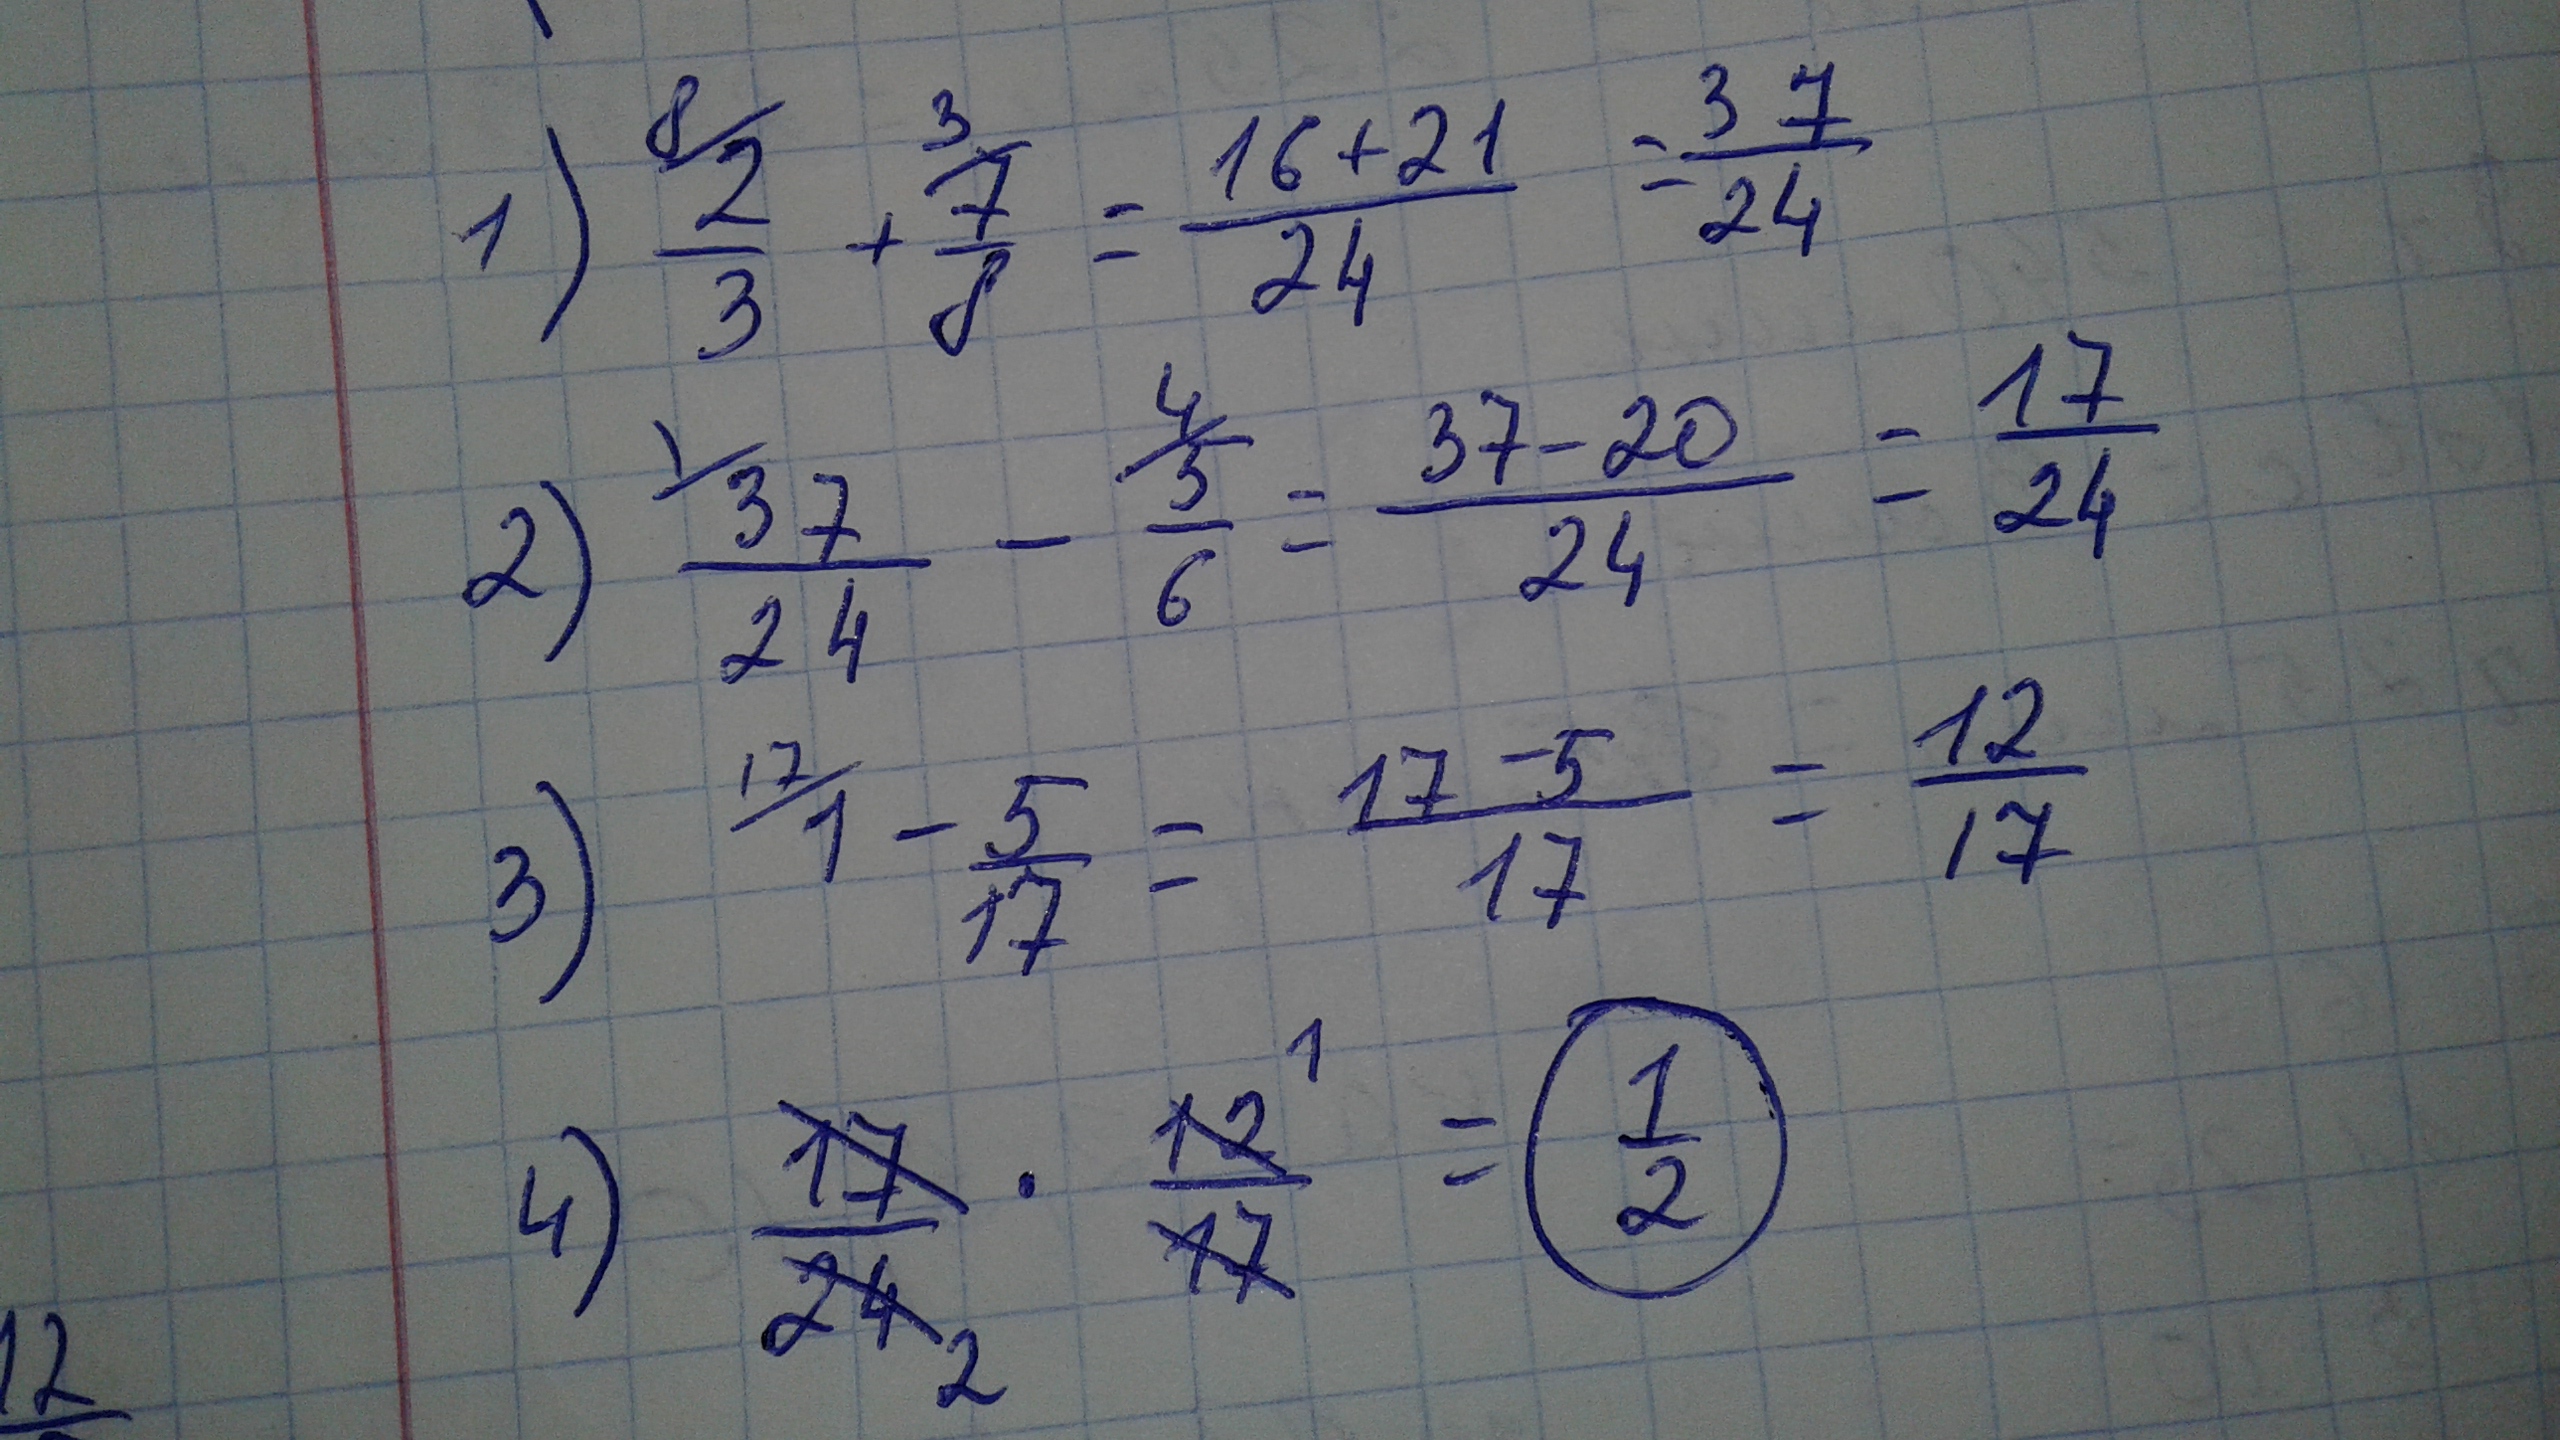 1) 8/ 2/3 + 3/ 7/8 = 16+21/24 = 37/24
2) 1/ 37/24 - 4/ 5/6 = 37-20/24 = 17/24
3) 17/ 1 - 5/17 = 17-5/17 = 12/17
4) 17/24 2 · 12/17 1 = 1/2
12